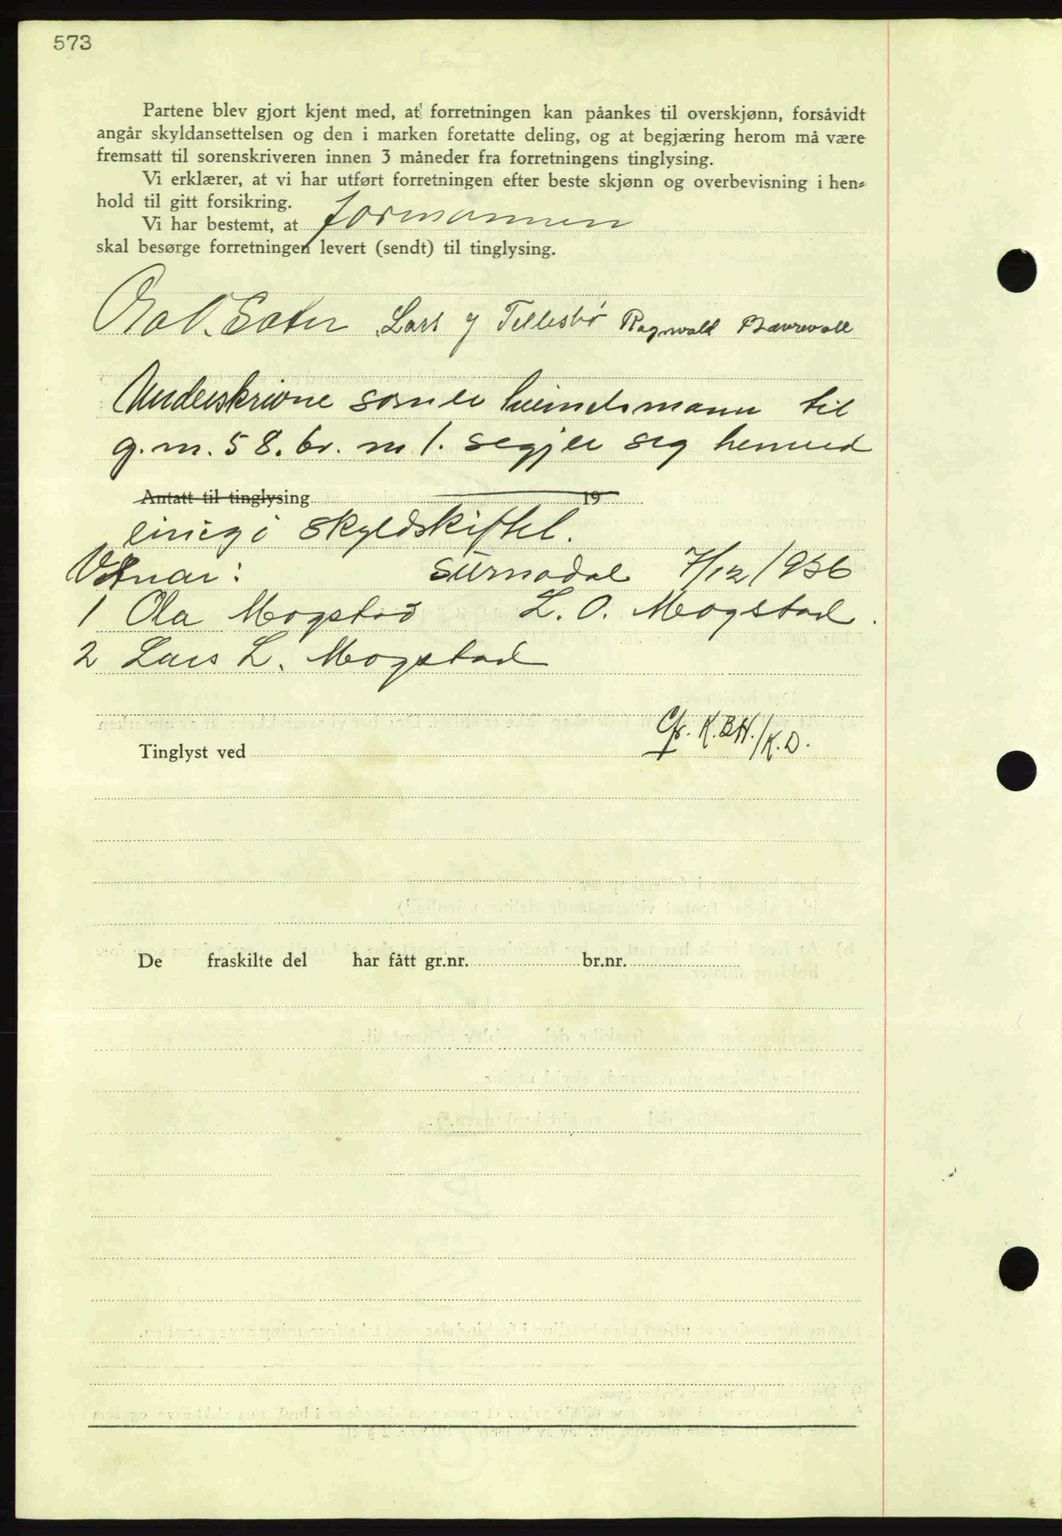 573
Partene blev gjort kjent med, at forretningen kan påankes til overskjønn, forsåvidt
angår skyldansettelsen og den i marken foretatte deling, og at begjæring herom må være
fremsatt til sorenskriveren innen 3 måneder fra forretningens tinglysing.
Vi erklærer, at vi har utført forretningen efter beste skjønn og overbevisning i hen-
hold til gitt forsikring.
Vi har bestemt, at formannen
skal besørge forretningen levert (sendt) til tinglysing.
Ola O. Sæter Lars J Tellesbø Ragnvald Bævrevoll
Underskrivne som er heimelsmann til
g.nr. 58. br. nr 1. segjer seg hermed
Antatt til tinglysing 19
einig i skyldskiftet.
Vitnar: Surnadal 7/12 1936
1 Ola Mogstad L. O. Mogstad.
2 Lars L. Mogstad
Gr. K.BH./K.D.
Tinglyst ved
De fraskilte del har fått gr.nr. br.nr.